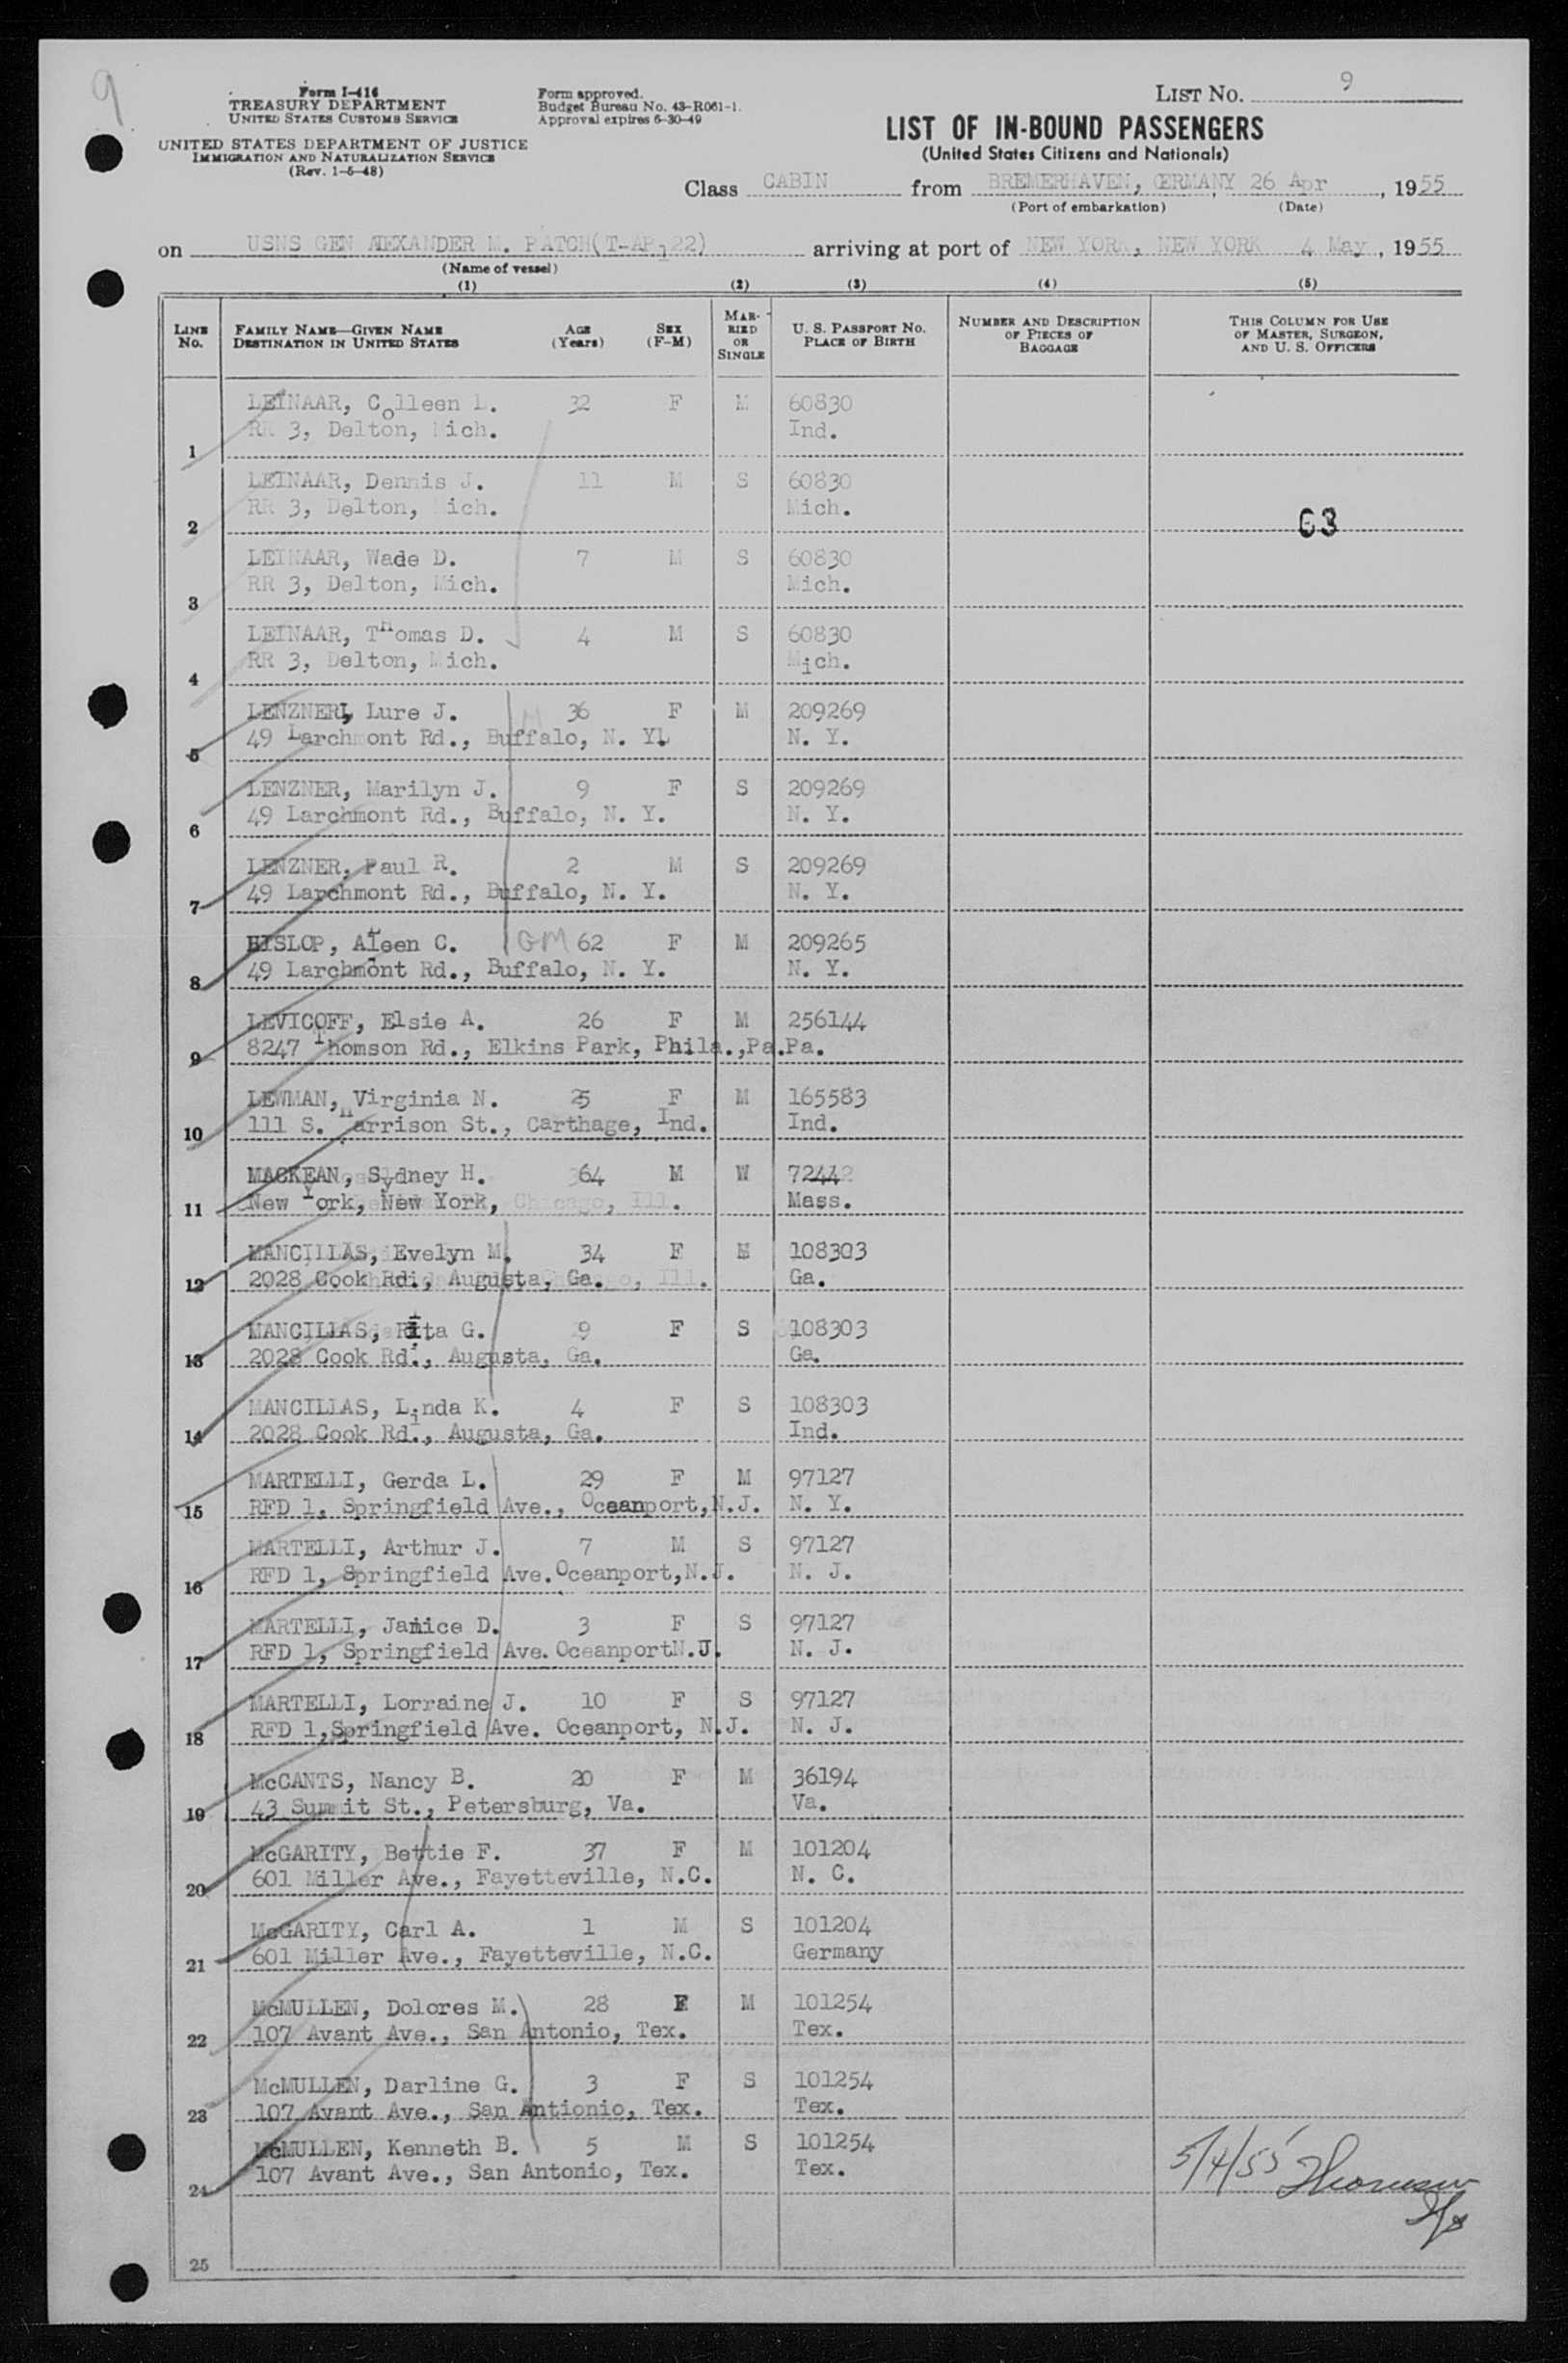 9
Form I-416
TREASURY DEPARTMENT
UNITED STATES CUSTOMS SERVICE
UNITED STATES DEPARTMENT OF JUSTICE
IMMIGRATION AND NATURALIZATION SERVICE
(Rev. 1-5-48)
Form approved.
Budget Bureau No. 43-R061-1.
Approval expires 6-30-49
LIST NO. 9
LIST OF IN-BOUND PASSENGERS
(United States Citizens and Nationals)
Class CABIN from BREMERHAVEN, GERMANY 26 Apr, 1955
(Port of embarkation) (Date)
on USNS GEN ALEXANDER M. PATCH(T-AP-122) arriving at port of NEW YORK, NEW YORK 4 May, 1955
(Name of vessel)
(1) (2) (3) (4) (5)
LINE No. FAMILY NAME—GIVEN NAME DESTINATION IN UNITED STATES AGE (Years) SEX (F-M) MARRIED OR SINGLE U. S. PASSPORT NO. PLACE OF BIRTH NUMBER AND DESCRIPTION OF PIECES OF BAGGAGE THIS COLUMN FOR USE OF MASTER, SURGEON, AND U. S. OFFICERS
LEINAAR, Colleen L. 32 F M 60830
1 RR 3, Delton, Mich. Ind.
LEINAAR, Dennis J. 11 M S 60830
2 RR 3, Delton, Mich. Mich. 63
LEINAAR, Wade D. 7 M S 60830
3 RR 3, Delton, Mich. Mich.
LEINAAR, Thomas D. 4 M S 60830
4 RR 3, Delton, Mich. Mich.
LENZNER, Lure J. M 36 F M 209269
5 49 Larchmont Rd., Buffalo, N. Y. N. Y.
LENZNER, Marilyn J. 9 F S 209269
6 49 Larchmont Rd., Buffalo, N. Y. N. Y.
LENZNER, Paul R. 2 M S 209269
7 49 Larchmont Rd., Buffalo, N. Y. N. Y.
HISLOP, Aleen C. GM 62 F M 209265
8 49 Larchmont Rd., Buffalo, N. Y. N. Y.
LEVICOFF, Elsie A. 26 F M 256144
9 8247 Thomson Rd., Elkins Park, Phila.,Pa. Pa.
LEWMAN, Virginia N. 25 F M 165583
10 111 S. Harrison St., Carthage, Ind. Ind.
MACKEAN, Sydney H. 64 M W 72442
11 New York, New York, Chicago, Ill. Mass.
MANCILLAS, Evelyn M. 34 F M 108303
12 2028 Cook Rd., Augusta, Ga. Ill. Ga.
MANCILLAS, Rita G. 9 F S 108303
13 2028 Cook Rd., Augusta, Ga. Ga.
MANCILLAS, Linda K. 4 F S 108303
14 2028 Cook Rd., Augusta, Ga. Ind.
MARTELLI, Gerda L. 29 F M 97127
15 RFD 1, Springfield Ave., Oceanport,N.J. N. Y.
MARTELLI, Arthur J. 7 M S 97127
16 RFD 1, Springfield Ave. Oceanport,N.J. N. J.
MARTELLI, Janice D. 3 F S 97127
17 RFD 1, Springfield Ave. OceanportN.J. N. J.
MARTELLI, Lorraine J. 10 F S 97127
18 RFD 1,Springfield Ave. Oceanport, N.J. N. J.
McCANTS, Nancy B. 20 F M 36194
19 43 Summit St., Petersburg, Va. Va.
McGARITY, Bettie F. 37 F M 101204
20 601 Miller Ave., Fayetteville, N.C. N. C.
McGARITY, Carl A. 1 M S 101204
21 601 Miller Ave., Fayetteville, N.C. Germany
McMULLEN, Dolores M. 28 F M 101254
22 107 Avant Ave., San Antonio, Tex. Tex.
McMULLEN, Darline G. 3 F S 101254
23 107 Avant Ave., San Antionio, Tex. Tex.
McMULLEN, Kenneth B. 5 M S 101254
24 107 Avant Ave., San Antonio, Tex. Tex. 5/4/55
25